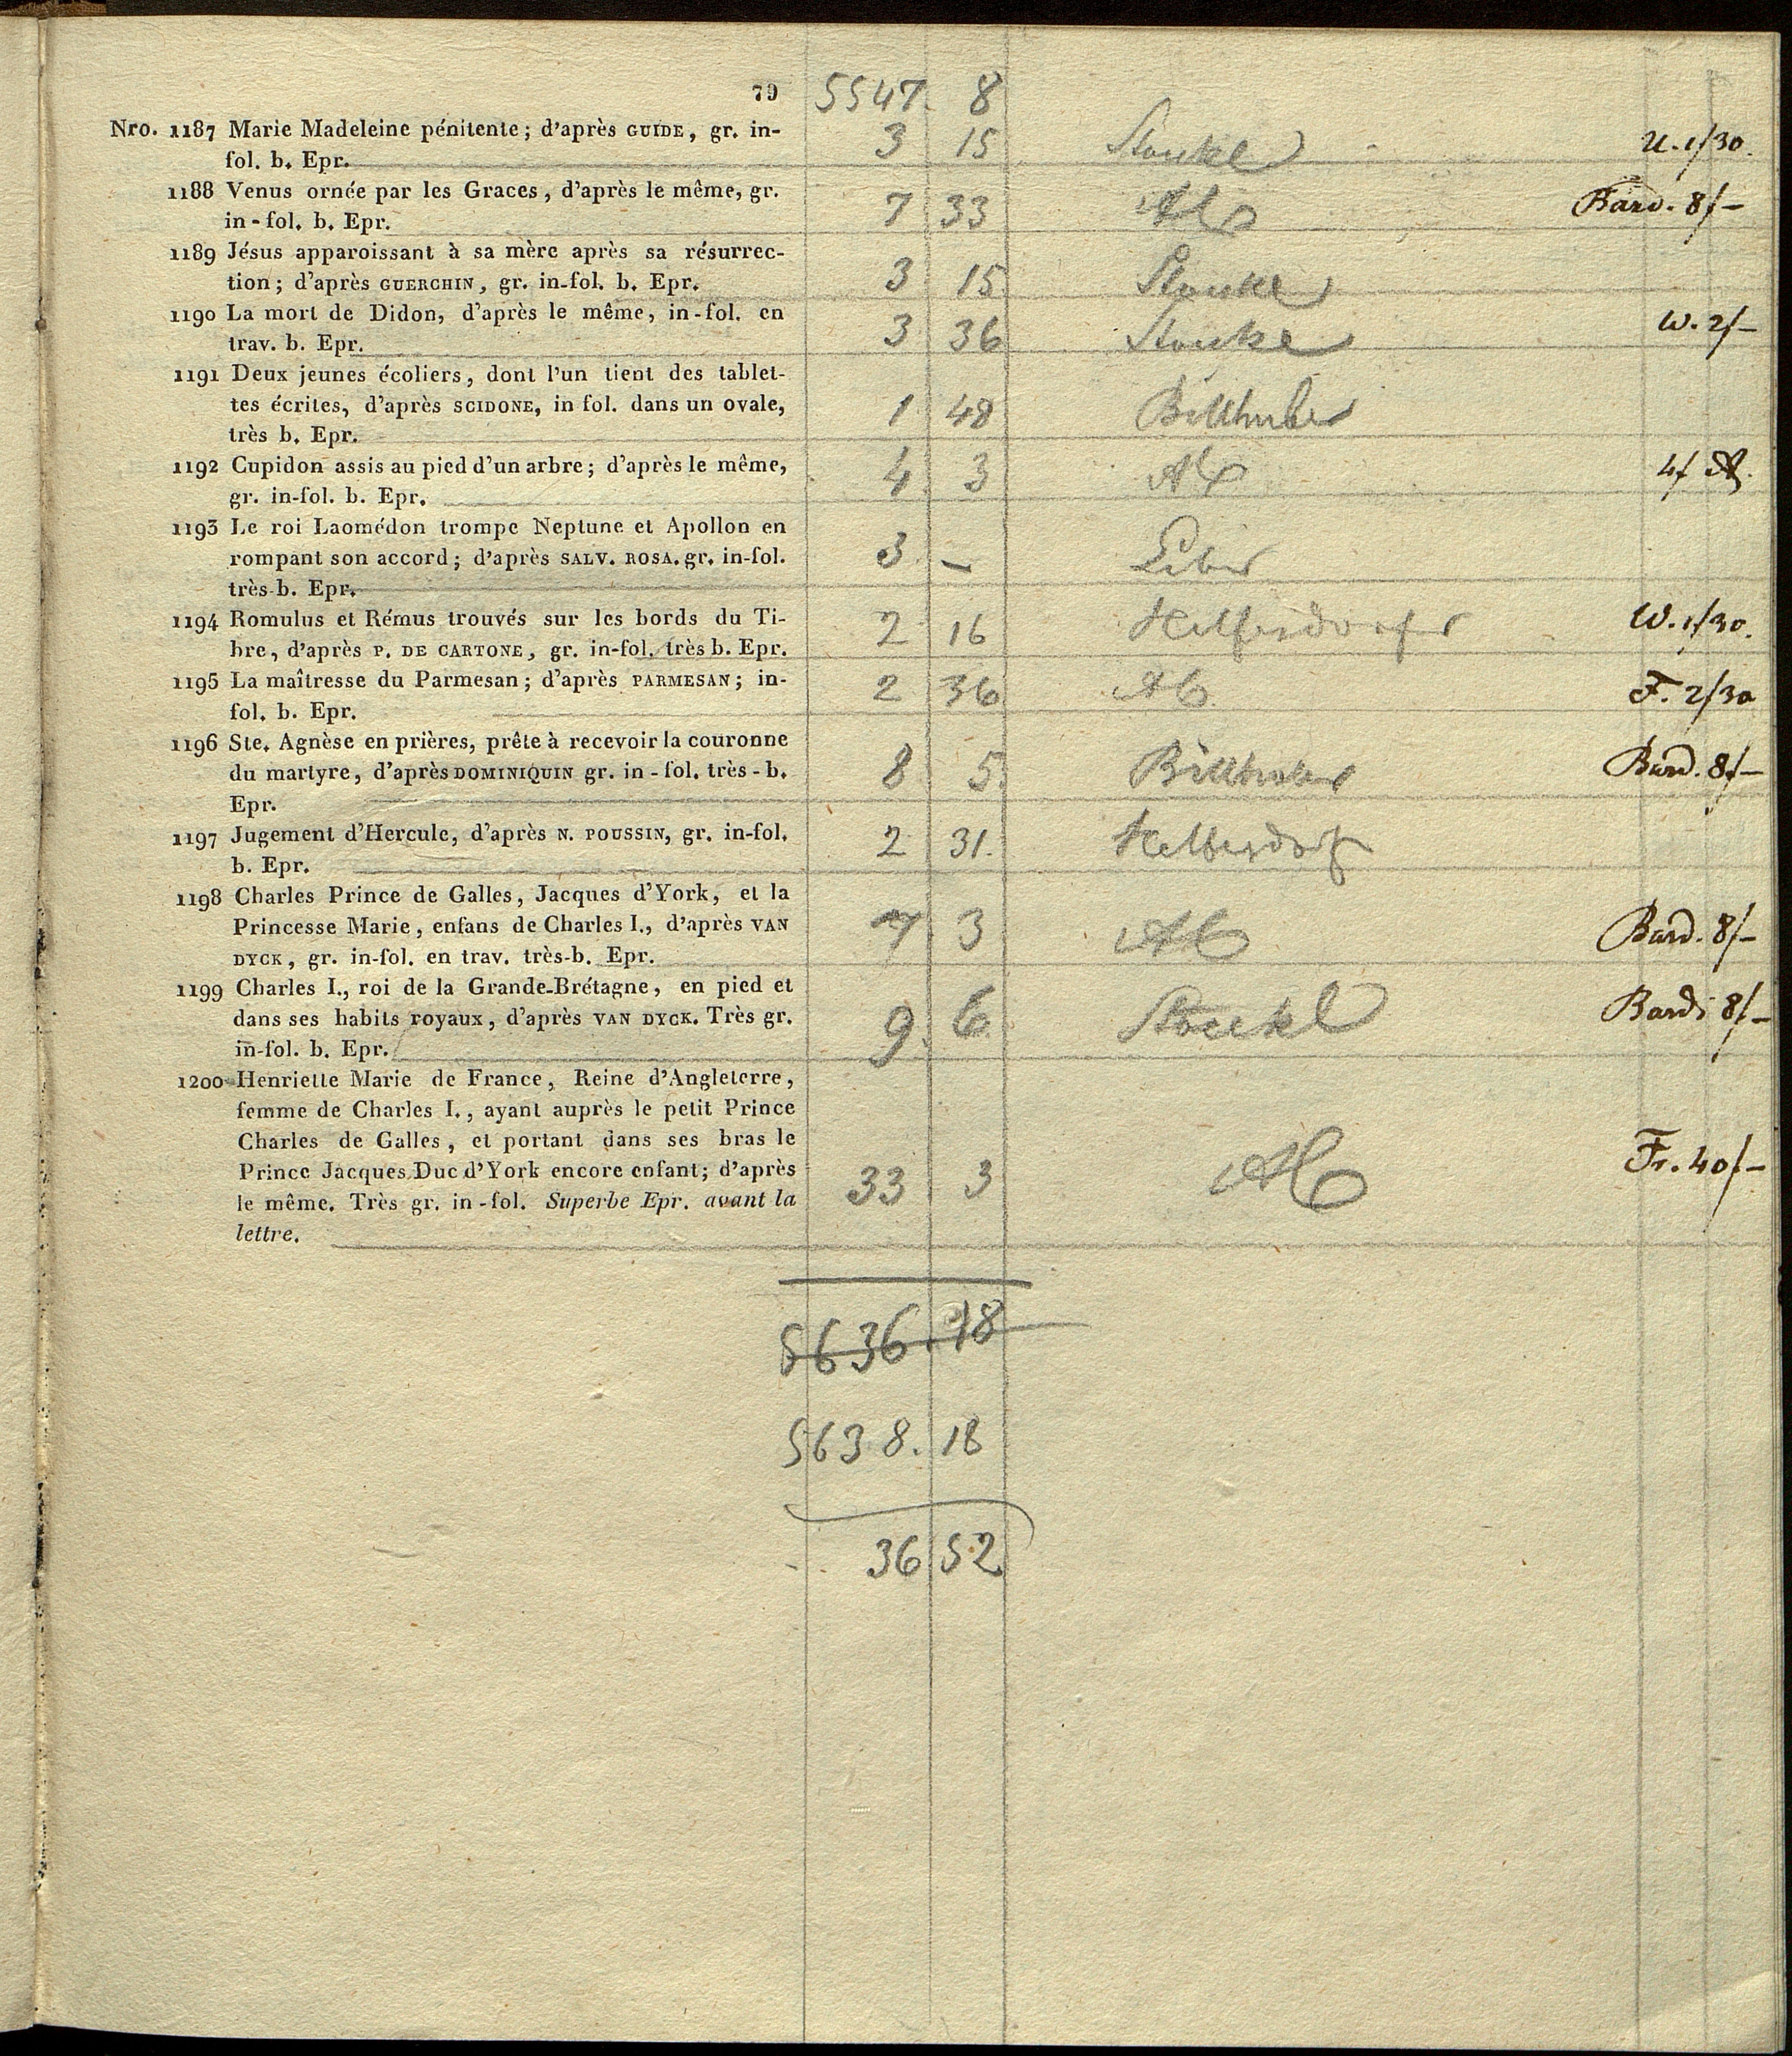 79 5547. 8
Nro. 1187 Marie Madeleine pénitente; d'après GUIDE, gr. in-
fol. b. Epr. 3 15 Stoukel U. 1f30.
1188 Venus ornée par les Graces, d'après le même, gr.
in-fol. b. Epr. 7 33 Bard. 8f—
1189 Jésus apparoissant à sa mère après sa résurrec-
tion; d'après GUERCHIN, gr. in-fol. b. Epr. 3 15
1190 La mort de Didon, d'après le même, in-fol. en
trav. b. Epr. 3 36 W. 2f—
1191 Deux jeunes écoliers, dont l'un tient des tablet-
tes écrites, d'après SCIDONE, in fol. dans un ovale,
très b. Epr. 1 48 Billhuber
1192 Cupidon assis au pied d'un arbre; d'après le même,
gr. in-fol. b. Epr. 4 3 4f
1193 Le roi Laomédon trompe Neptune et Apollon en
rompant son accord; d'après SALV. ROSA. gr. in-fol.
très-b. Epr. 3 —
1194 Romulus et Rémus trouvés sur les bords du Ti-
bre, d'après P. DE CARTONE, gr. in-fol. très b. Epr. 2 16 Helfersdorfer W. 1f30.
1195 La maîtresse du Parmesan; d'après PARMESAN; in-
fol. b. Epr. 2 36 F. 2f30
1196 Ste. Agnèse en prières, prête à recevoir la couronne
du martyre, d'après DOMINIQUIN gr. in-fol. très-b.
Epr. 8 5 Billhuber Bard. 8f—
1197 Jugement d'Hercule, d'après N. POUSSIN, gr. in-fol.
b. Epr. 2 31. Helfersdorf
1198 Charles Prince de Galles, Jacques d'York, et la
Princesse Marie, enfans de Charles I., d'après VAN
DYCK, gr. in-fol. en trav. très-b. Epr. 7 3 Bard. 8f—
1199 Charles I., roi de la Grande-Brétagne, en pied et
dans ses habits royaux, d'après VAN DYCK. Très gr.
in-fol. b. Epr. 9. 6 Stoukel Bardi 8f—
1200 Henriette Marie de France, Reine d'Angleterre,
femme de Charles I., ayant auprès le petit Prince
Charles de Galles, et portant dans ses bras le
Prince Jacques Duc d'York encore enfant; d'après
le même. Très gr. in-fol. Superbe Epr. avant la
lettre. 33 3 Fr. 40f—
5636.18
5638.18
36 52